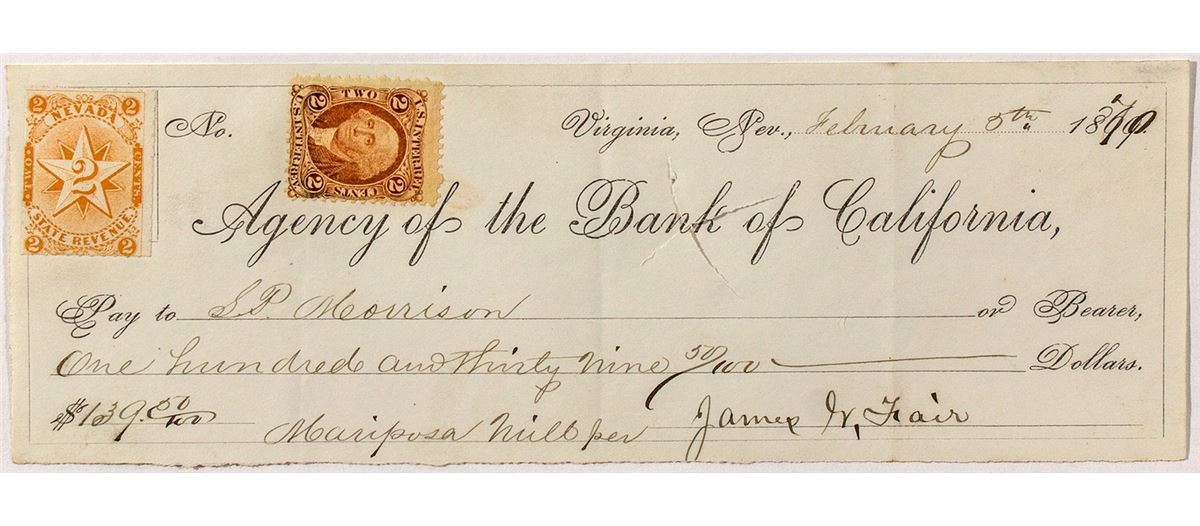 2 NEVADA 2
TWO 2 CENTS
STATE REVENUE.
2 2
2 TWO 2
U.S. INTER. REV. U.S. INTER. REV.
2 CENTS 2
No. Virginia, Nev., February 5th 1870
Agency of the Bank of California,
Pay to S.P. Morrison or Bearer,
One hundred and thirty nine 50/100 Dollars.
$139.50/100
Mariposa Mill per James G. Fair